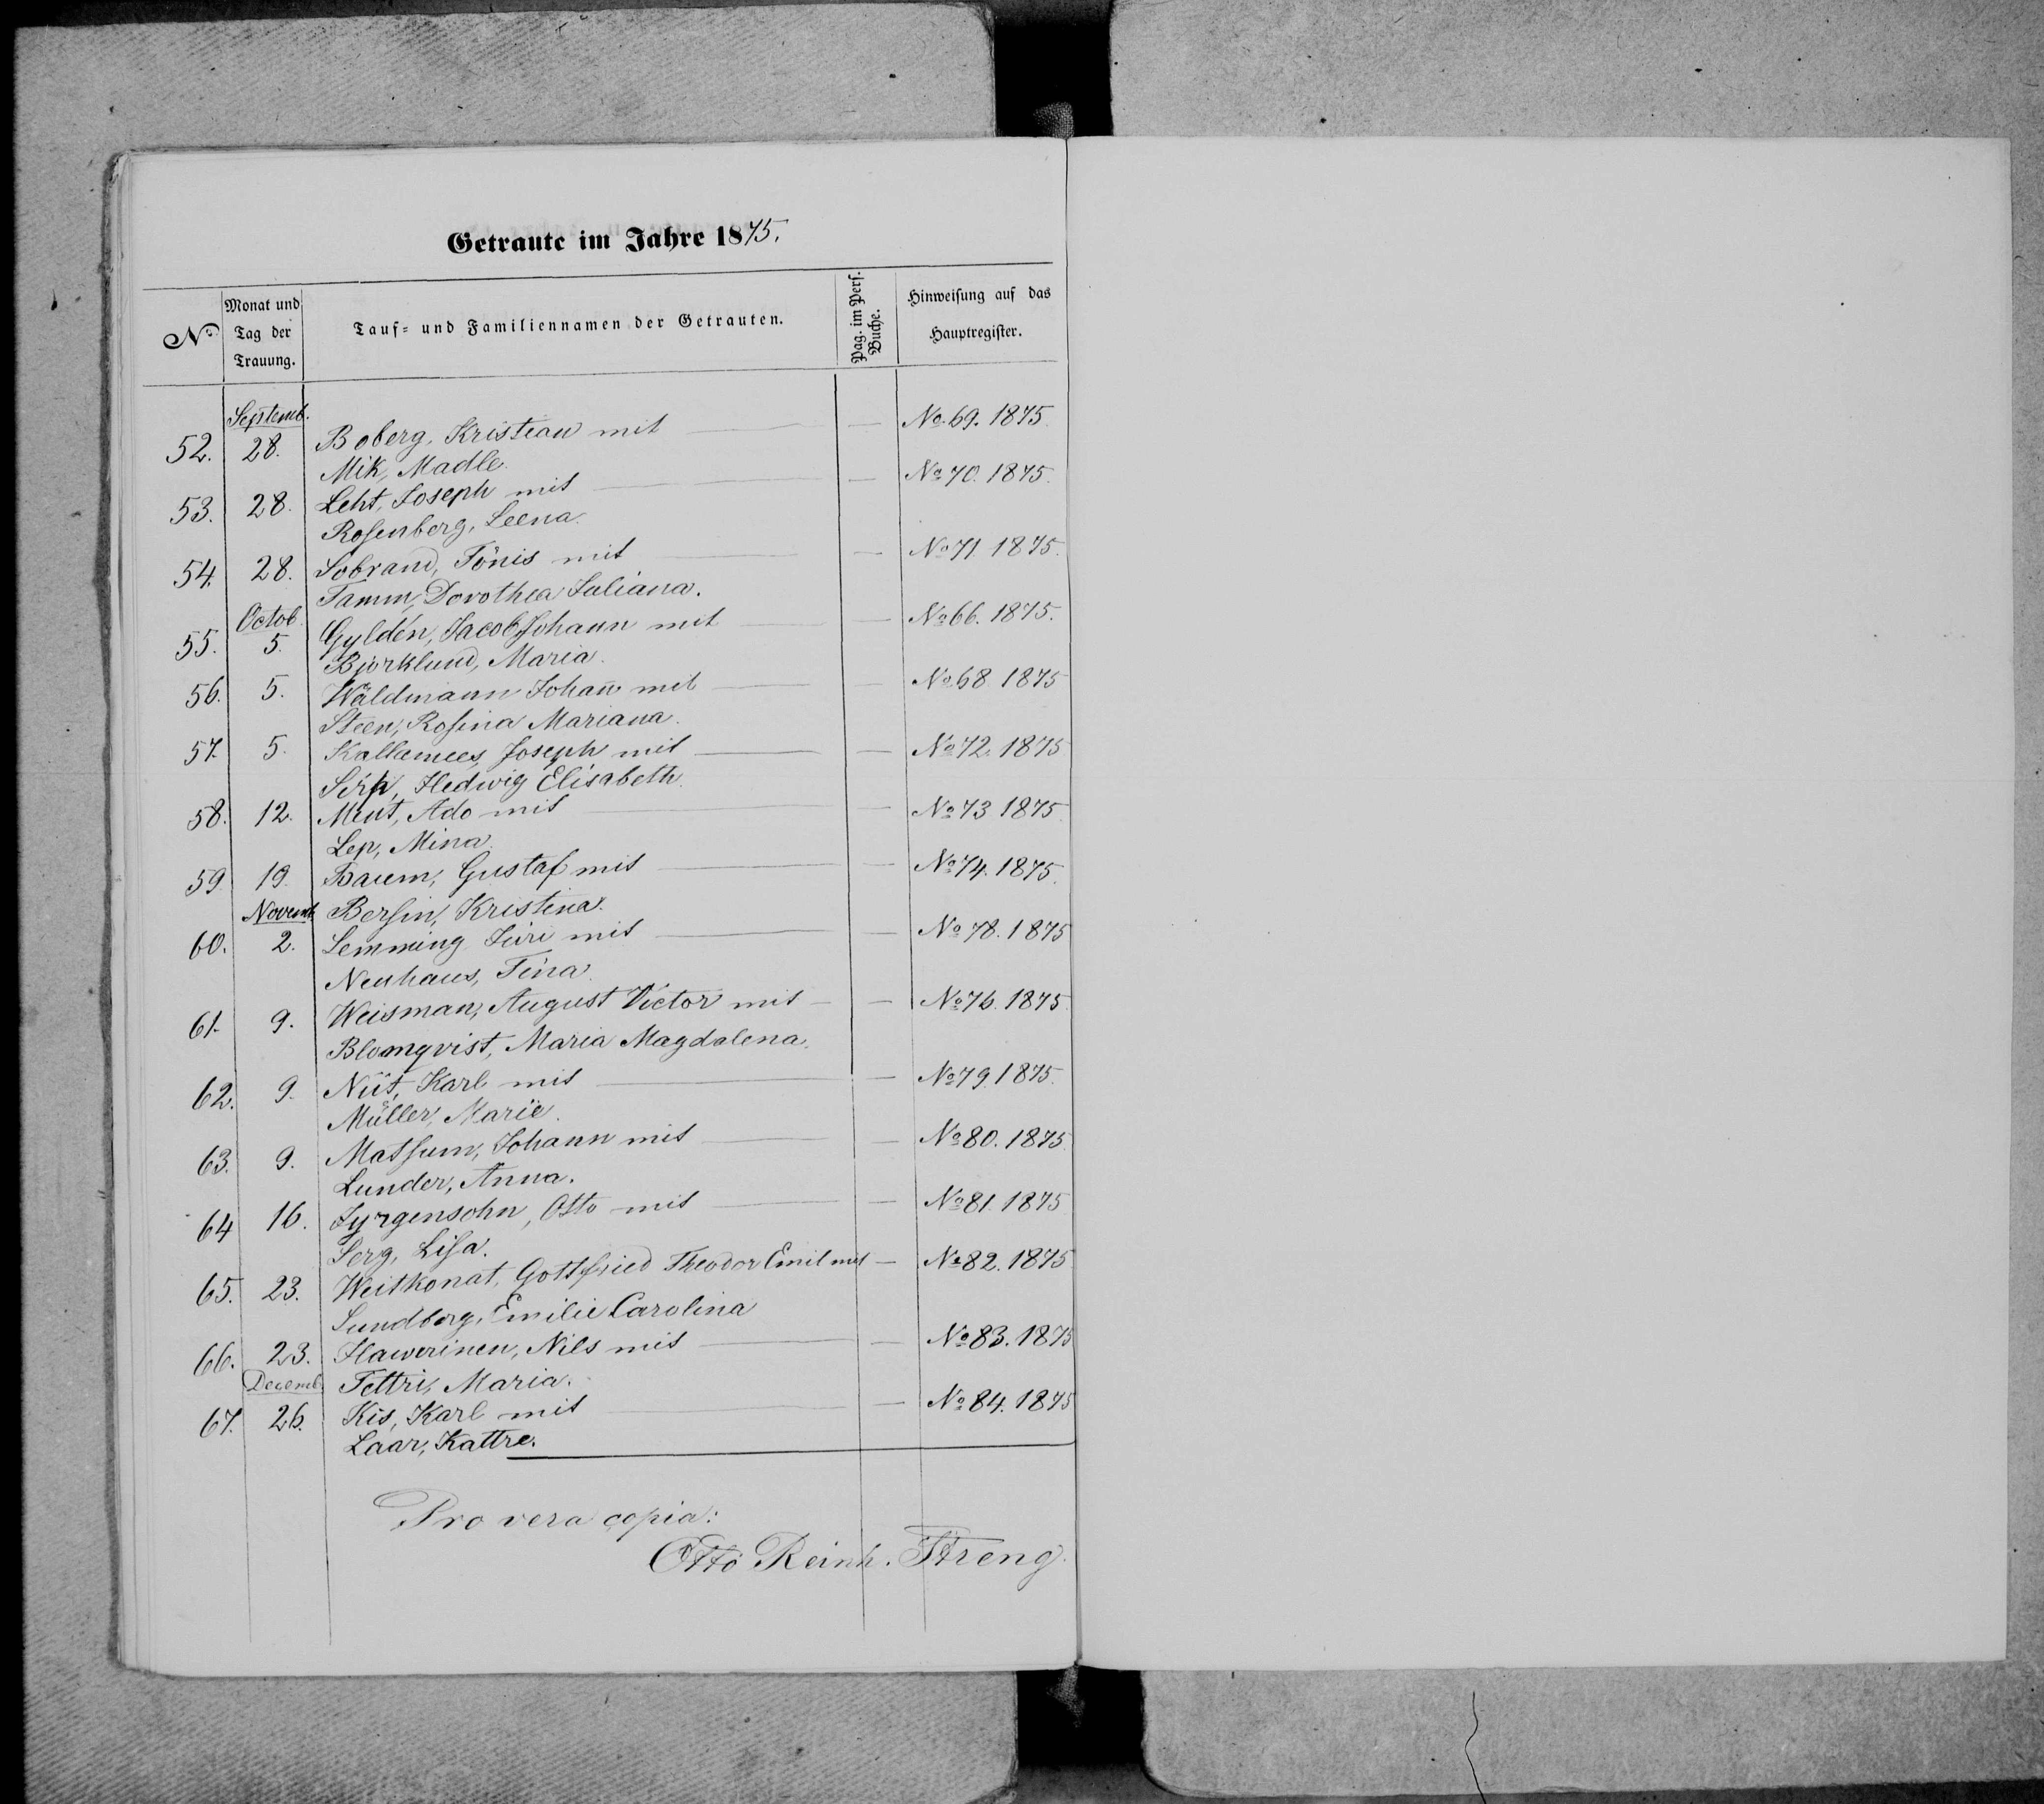 Getraute im Jahre 1875.
No
Monat und
Tag der
Trauung.
Tauf- und Familiennamen der Getrauten.
Pag. im Pers.
Buche.
Hinweisung auf das
Hauptregister.
Septemb.
52. 28. Boberg, Kristian mit — — No 69. 1875.
Mik, Madle.
53. 28. Leht, Joseph mit — — No 70. 1875.
Rosenberg, Leena.
54. 28. Sobrand, Tönis mit — — No 71 1875.
Tamm, Dorothea Juliana.
Octob.
55. 5. Gyldén, Jacob Johann mit — — No 66. 1875.
Björklund, Maria.
56. 5. Wäldmann Johan̅ mit — — No 68 1875
Steen, Rosina Mariana.
57. 5. Kallamees, Joseph mit — — No 72. 1875
Sirp, Hedwig Elisabeth.
58. 12. Ado mit — — No 73 1875.
Lep, Mina.
59. 19. Baum, Gustaf mit — — No 74. 1875.
Bersin, Kristina.
Novemb.
60. 2. Lemming Jüri mit — — No 78. 1875
Neuhaus, Tina.
61. 9. Weisman, August Victor mit — — No 76. 1875.
Blomqvist, Maria Magdalena.
62. 9. Niit, Karl mit — — No 79. 1875.
Müller, Marie.
63. 9. Matsum, Johann mit — — No 80. 1875.
Lunder, Anna.
64 16. Jyrgensohn, Otto mit — — No 81. 1875
Serg, Lisa.
65. 23. Weitkonat, Gottfried Theodor Emil mit — No 82. 1875
Sundberg, Emilie Carolina
66. 23. Hawerinen, Nils mit — — No 83. 1875
Tettri, Maria.
Decemb.
67. 26. Kis, Karl mit — — No 84. 1875
Laar, Kattre.
Pro vera copia:
Otto Reinh. Streng.